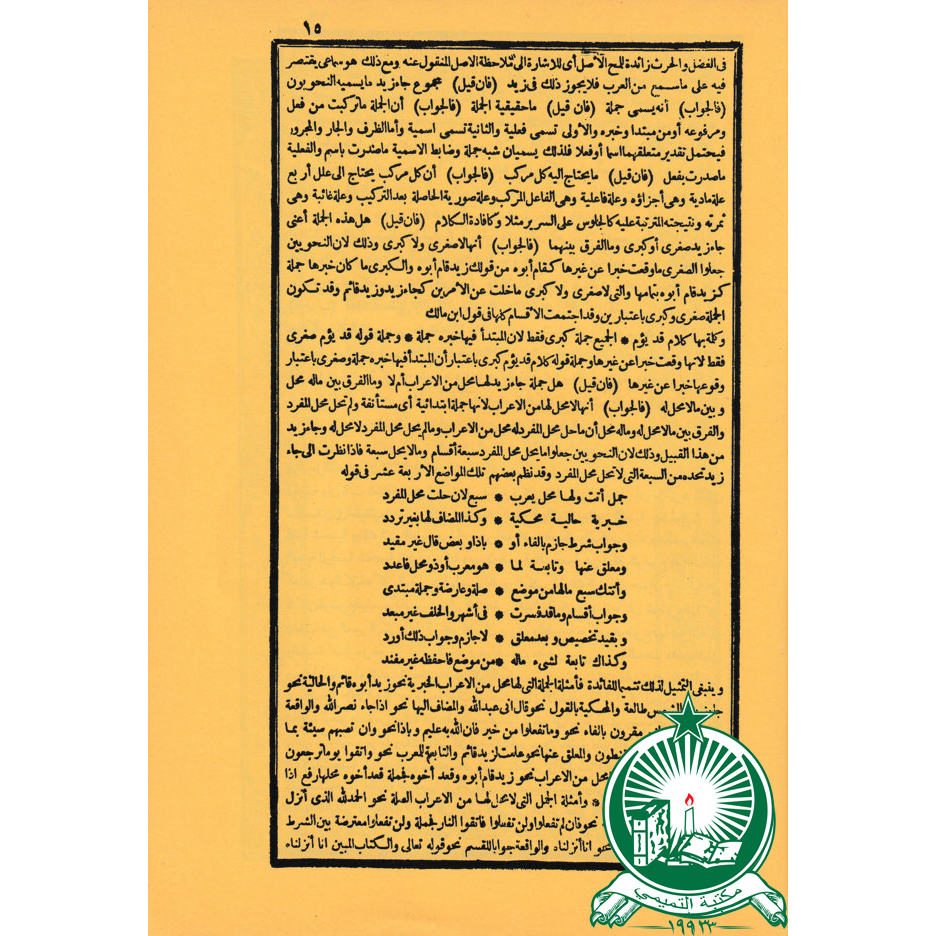 ١٥
فى الفضل والحرث زائدة للمح الأصل أى للاشارة الى ملاحظة الاصل المنقول عنه ومع ذلك هو سماعى يقتصر
فيه على ما سمع من العرب فلا يجوز ذلك فى زيد (فان قيل) مجموع جاء زيد ما يسميه النحويون
(فالجواب) أنه يسمى جملة (فان قيل) ما حقيقة الجملة (فالجواب) أن الجملة ما تركبت من فعل
ومرفوعه أو من مبتدا وخبره والأولى تسمى فعلية والثانية تسمى اسمية وأما الظرف والجار والمجرور
فيحتمل تقدير متعلقهما اسما أو فعلا فلذلك يسميان شبه جملة وضابط الاسمية ما صدرت باسم والفعلية
ما صدرت بفعل (فان قيل) ما يحتاج اليه كل مركب (فالجواب) أن كل مركب يحتاج الى علل أربع
علة مادية وهى أجزاؤه وعلة فاعلية وهى الفاعل المركب وعلة صورية الحاصلة بعد التركيب وعلة غائية وهى
ثمرته ونتيجته المترتبة عليه كالجلوس على السرير مثلا وكافادة الكلام (فان قيل) هل هذه الجملة أعنى
جاء زيد صغرى أو كبرى وما الفرق بينهما (فالجواب) أنها لا صغرى ولا كبرى وذلك لان النحويين
جعلوا الصغرى ما وقعت خبرا عن غيرها كقام أبوه من قولك زيد قام أبوه والكبرى ما كان خبرها جملة
كزيد قام أبوه بتمامها والتى لا صغرى ولا كبرى ما خلت عن الأمرين كجاء زيد وزيد قائم وقد تكون
الجملة صغرى وكبرى باعتبارين وقد اجتمعت الأقسام كلها فى قول ابن مالك
وكلمة بها كلام قد يؤم * الجميع جملة كبرى فقط لان المبتدأ فيها خبره جملة * وجملة قوله قد يؤم صغرى
فقط لانها وقعت خبرا عن غيرها وجملة قوله كلام قد يؤم كبرى باعتبار أن المبتدأ فيها خبره جملة وصغرى باعتبار
وقوعها خبرا عن غيرها (فان قيل) هل جملة جاء زيد لها محل من الاعراب أم لا وما الفرق بين ماله محل
وبين مالا محل له (فالجواب) أنها لا محل لها من الاعراب لانها جملة ابتدائية أى مستأنفة ولم تحل محل المفرد
والفرق بين مالا محل له وماله محل أن ما حل محل المفرد له محل من الاعراب وما لم يحل محل المفرد لا محل له وجاء زيد
من هذا القبيل وذلك لان النحويين جعلوا ما يحل محل المفرد سبعة أقسام ومالا يحل سبعة فاذا نظرت الى جاء
زيد تجده من السبعة التى لا تحل محل المفرد وقد نظم بعضهم تلك المواضع الأربعة عشر فى قوله
جمل أتت ولها محل يعرب * سبع لان حلت محل المفرد
خبرية حالية محكية * وكذا المضاف لها بغير تردد
وجواب شرط جازم بالفاء أو * باذا وبعض قال غير مقيد
ومعلق عنها وتابعة لما * هو معرب أو ذو محل فاعدد
وأتتك سبع مالها من موضع * صلة وعارضة وجملة مبتدى
وجواب أقسام وما قد فسرت * فى أشهر والخلف غير مبعد
وبقيد تخصيص وبعد معلق * لا جازم وجواب ذلك أورد
وكذاك تابعة لشىء ماله * من موضع فاحفظه غير مفند
وينبغى التمثيل لذلك تتميما للفائدة فأمثلة الجملة التى لها محل من الاعراب الخبرية نحو زيد أبوه قائم والحالية نحو
الشمس طالعة والمحكية بالقول نحو قال انى عبدالله والمضاف اليها نحو اذا جاء نصر الله والواقعة
مقرون بالفاء نحو وما تفعلوا من خير فان الله به عليم وباذا نحو وان تصبهم سيئة بما
والمعلق عنها نحو علمت لزيد قائم والتابعة للمعرب نحو واتقوا يوما ترجعون
محل من الاعراب نحو زيد قام أبوه وقعد أخوه فجملة قعد أخوه محلها رفع اذا
* وأمثلة الجمل التى لا محل لها من الاعراب الصلة نحو الحمد لله الذى أنزل
نحو فان لم تفعلوا ولن تفعلوا فاتقوا النار فجملة ولن تفعلوا معترضة بين الشرط
نحو انا أنزلناه والواقعة جوابا للقسم نحو قوله تعالى والكتاب المبين انا أنزلناه
مكتبة التميمي
١٩٩٣